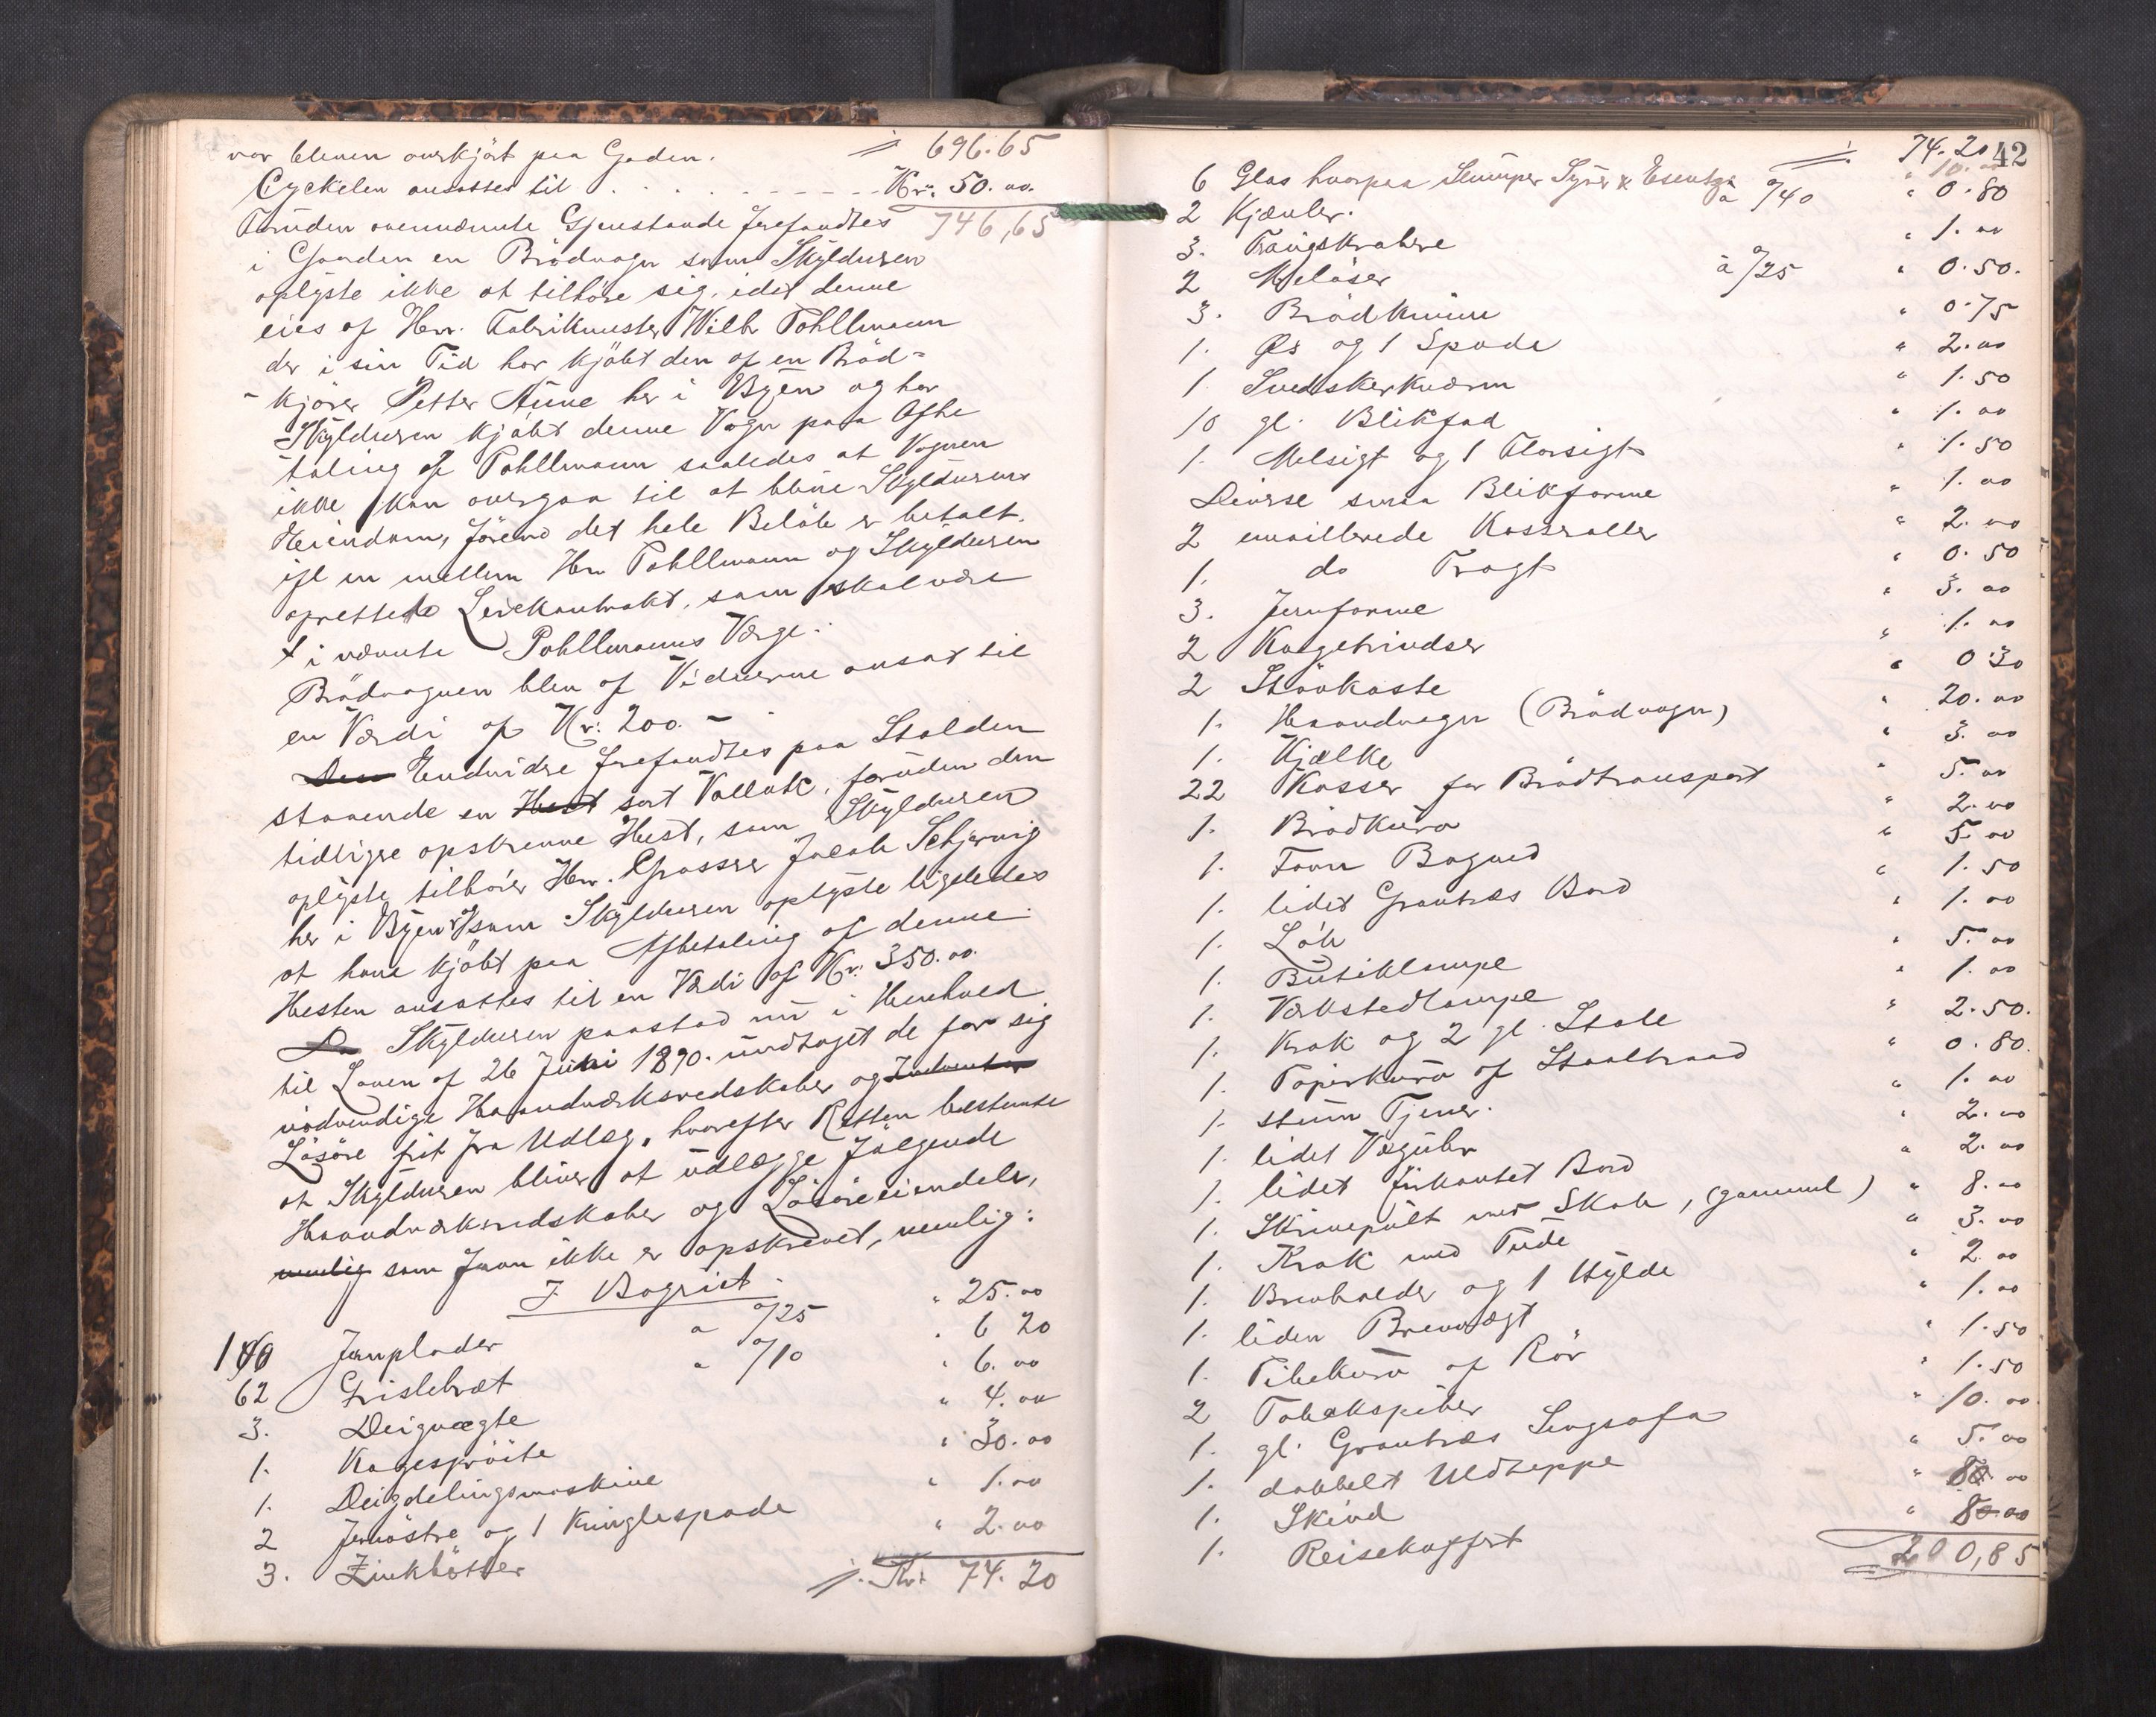 var bleven overkjört paa Gaden. 696.65
Cyckelen ansattes til . . . . Kr. 50.00.
Foruden ovennævnte Gjenstande forefandtes 746,65
i Gaarden en Brödvogn som Skyldneren
oplyste ikke at tilhöre sig, idet denne
eies af Herr. Fabrikmester Wilh Pohllmann
der i sin Tid har kjöbt den af en Bröd-
-kjörer Petter Aune her i Byen og har
Skyldneren kjöbt denne Vogn paa Afbe
taling af Pohllmann saaledes at Vognen
ikke kan overgaa til at blive Skyldneren
Eiendom, förend det hele Belöb er betalt.
ifl en mellem Herr Pohllmann og Skyldneren
oprettede Leiekontrakt, som skal være
i nævnte Pohllmanns Værge.
Brödvognen blev af Vidnerne ansat til
en Værdi af Kr: 200. -
Den Endvidre forefandtes paa Stalden
staaende en Hest sort Vallak, foruden den
tidligre opskrevne Hest, som Skyldneren
oplyste tilhörer Herr. Grosser Jacob Schjervig
her i Byen som Skyldneren oplyste ligeledes
at have kjöbt paa Afbetaling af denne.
Hesten ansattes til en Værdi af Kr: 350.00.
Da Skyldneren paastod nu i Henhold
til Loven af 26 Juni 1890. undtaget de for sig
nödvendige Haandværksredskaber og
Lösöre frit fra Udlæg, hvorefter Retten bestemte
at Skyldneren bliver at udlægge fölgende
Haandværksredskaber og Lösöreeiendele,
nemlig som foran ikke er opskrevet, nemlig:
I Bageriet.
100 Jernplader a 0/25 " 25.00
62 Grislebræt " 0/10 " 6 20
3. Deigvægte " 6.00
1. Kagespröite " 4.00
1. Deigdelingsmaskine " 30.00
2 Jernöstre og 1 Kringlespade " 1.00
3. Zinkbötter " 2.00
Kr. 74.20
42
74.20
6 Glas hvorpaa Slumper Syrer & Esentser " 10.
2 Kjævler. à 0/40 " 0.80
3. Traugskrabere " 1.00
2 Meløser à 0/25 " 0.50.
3. Brödknive " 0.75
1. Øs og 1 Spade " 2.00
1. Svedskerkværn " 1.50
10 gl. Blikfad " 1.00
1. Melsigt og 1 Florsigt " 1.50
Diverse smaa Blikforme " 1.00
2 emaillerede Kasseroller " 2.00
1. do Tragt " 0.50
3. Jernforme " 3.00
2 Kagetrindser " 1.00
2 Stövkoste " 0 30
1. Haandvogn (Brödvogn) " 20.00
1. Kjælke " 3.00
22 Kasser for Brödtransport " 5.00
1. Brödkurv " 2.00
1. Favn Bagved " 5.00
1. lidet Grantræs Bord " 1.50
1. Löb " 1.00
1. Butiklampe " 5.00
1. Værkstedlampe " 1.00
1. Krak og 2 gl. Stole " 2.50.
1. Papirkurv af Staaltraad " 0.80.
1. stum Tjener. " 1.00
1. lidet Vægúhr " 2.00
1. lidet firkantet Bord " 2.00
1. Skrivepult med Skab, (gammel) " 8.00
1. Krak med Pude " 3.00
1. Brevholder og 1 Hylde " 2.00
1. liden Brevvægt " 1.00
1. Pibekurv af Rör " 1.50
2 Tobakspiber " 1.50
1. gl. Grantræs Sengsofa " 10.00
1. dobbelt Uldteppe " 5.00
1. Skind " 8.00
1. Reisekoffert " 8.00
200,85